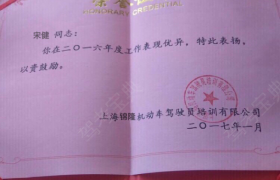 荣誉证
宋健 同志：
你在二〇一六年度工作表现优异，特此表扬，
以资鼓励。
上海锦隆机动车驾驶员培训有限公司
二〇一七年一月